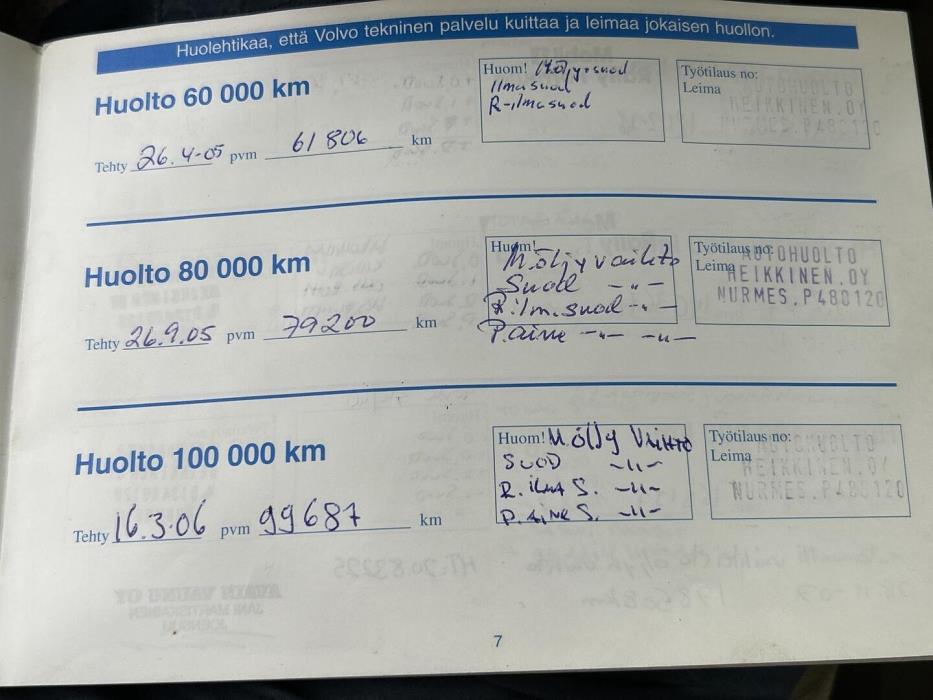 Huolehtikaa, että Volvo tekninen palvelu kuittaa ja leimaa jokaisen huollon.
Huolto 60 000 km
Tehty 26.4-05 pvm 61806 km
Huom! Möljy+suod
Ilmasuod
R-ilmasuod
Työtilaus no:
Leima
AUTOHUOLTO
HEIKKINEN.OY
NURMES.P480120
Huolto 80 000 km
Tehty 26.9.05 pvm 79200 km
Huom!
M.öljy vaihto
Suod -"-
R.ilm.suod -"-
P.aine -"- -"-
Työtilaus no:
Leima
AUTOHUOLTO
HEIKKINEN.OY
NURMES.P480120
Huolto 100 000 km
Tehty 16.3.06 pvm 99687 km
Huom! M.ölJy Vaihto
SUOD -"-
R. ilmA S. -"-
P. AiNE S. -"-
Työtilaus no:
Leima
AUTOHUOLTO
HEIKKINEN.OY
NURMES.P480120
7